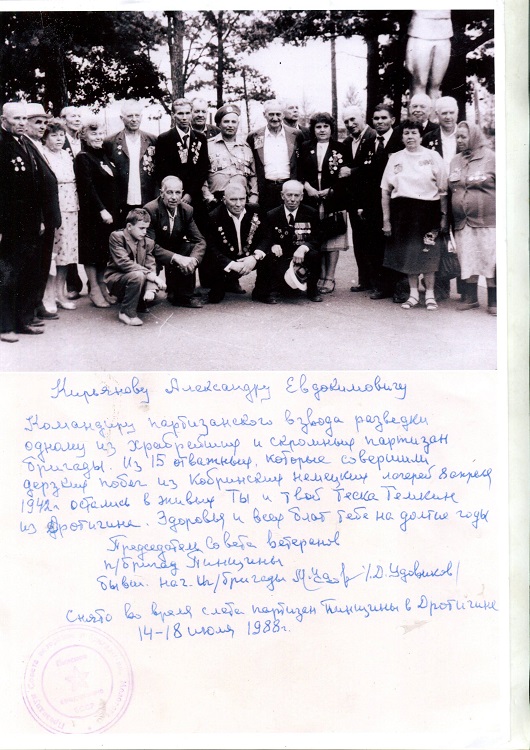 Кирьянову Александру Евдокимовичу
Командиру партизанского взвода разведки
одному из храбрейших и скромных партизан
бригады. Из 15 отважных, которые совершили
дерзких побег из Кобринских немецких лагерей 8 апреля
1942г остались в живых Ты и твой тёска
из Дротигина. Здоровья и всех благ тебе на долгие годы
Председатель Совета ветеранов
п/бригад Пинщины
бывш. нач. шт/бригады /Д. Удовиков/
Снято во время слета партизан Пинщины в Дротигине
14-18 июля 1988г.